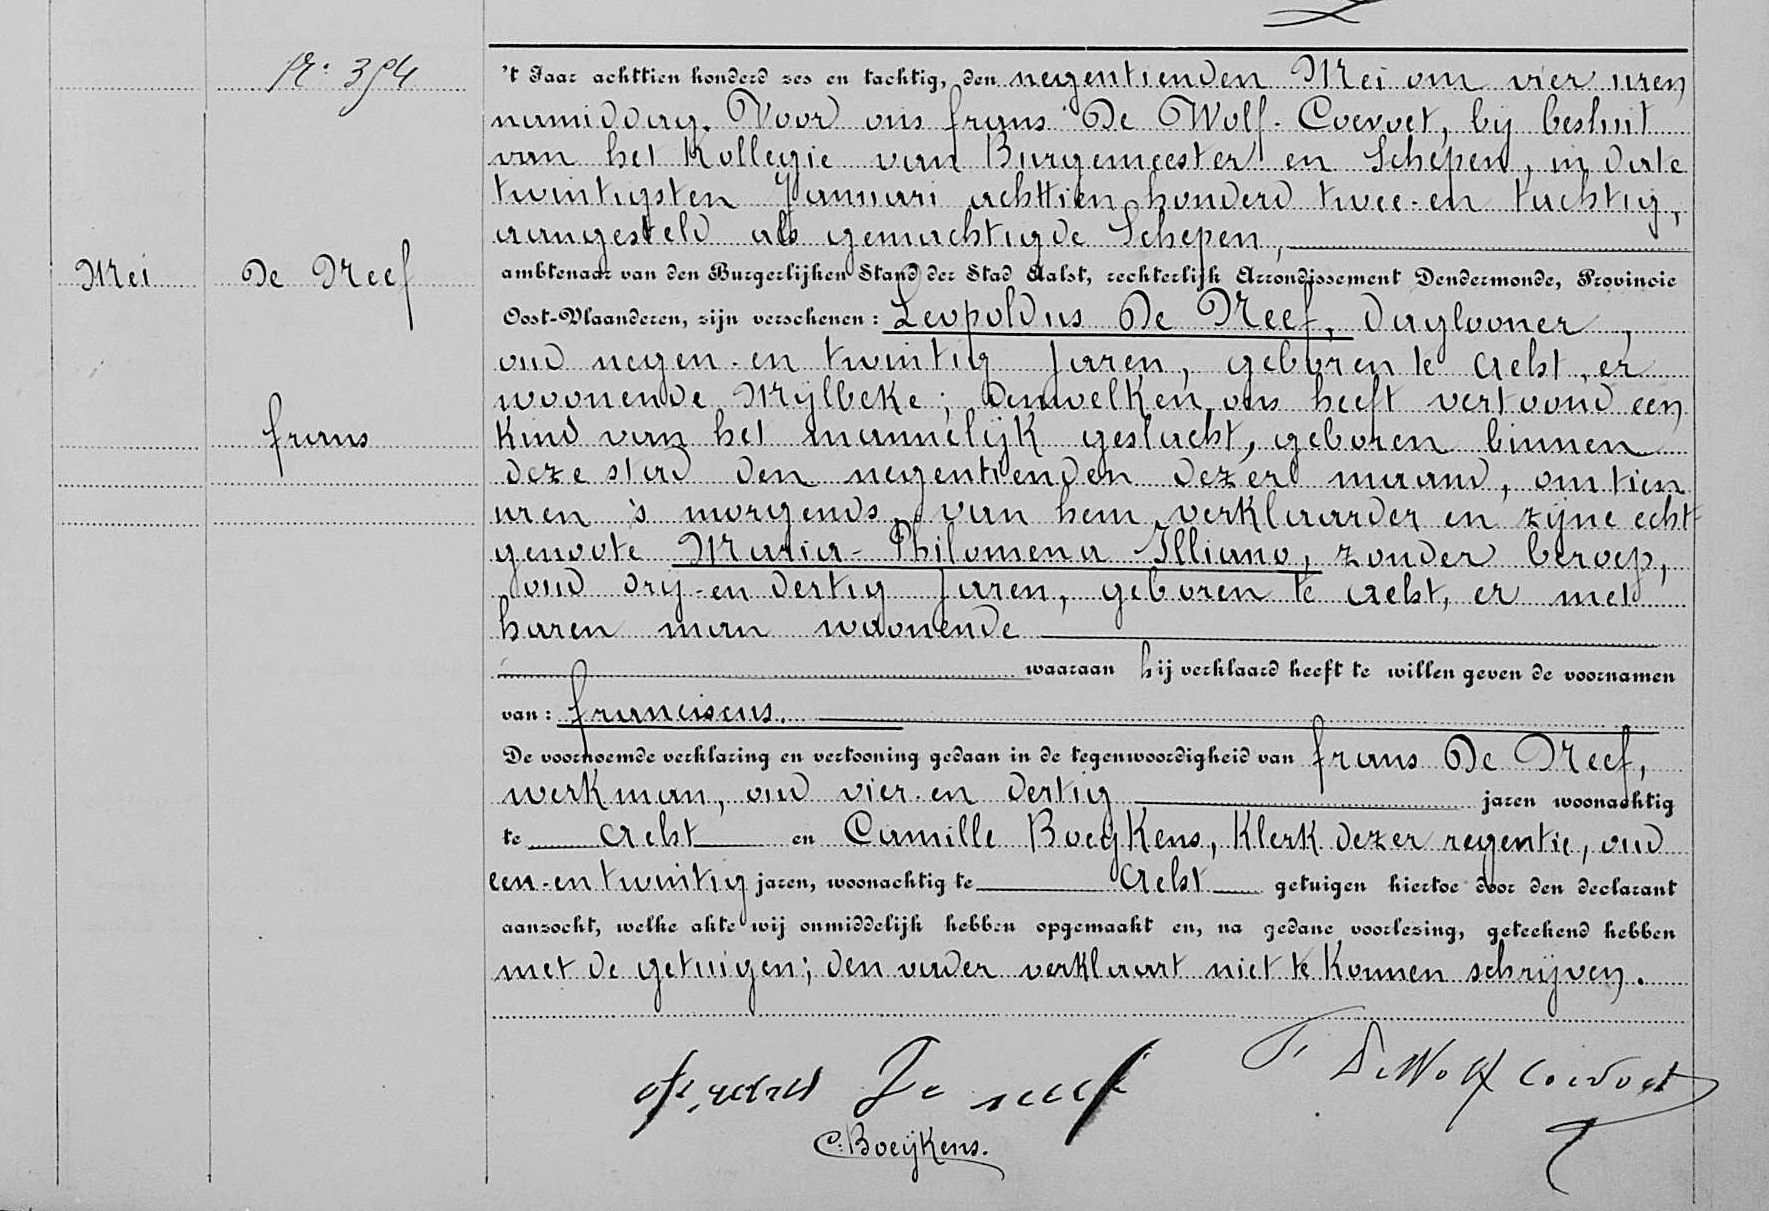 No 394
't Jaar achttien honderd zes en tachtig, den negentienden Mei om vier uren
namiddag. Voor ons frans De Wolf-Coevoet, bij besluit
van het Kollegie van Burgemeester en Schepen, in date
twintigsten Januari achttien honderd twee-en tachtig,
aangesteld als gemachtigde Schepen,
Mei De Neef
ambtenaar van den Burgerlijken Stand der Stad Aalst, rechterlijk Arrondissement Dendermonde, Provincie
Oost-Vlaanderen, zijn verschenen: Leopoldus De Neef, daglooner,
oud negen-en twintig jaren, geboren te Aelst, er
woonende Mijlbeke; denwelken ons heeft vertoond een
frans
kind van het mannelijk geslacht, geboren binnen
deze stad den negentienden dezer maand, om tien
uren 's morgends, van hem verklaarder en zijne echt-
genoote Maria-Philomena Illiano, zonder beroep,
oud dry-en dertig jaren, geboren te Aelst, er met
haren man woonende
waaraan hij verklaard heeft te willen geven de voornamen
van: franciscus.
De voornoemde verklaring en vertooning gedaan in de tegenwoordigheid van frans De Neef,
werkman, oud vier-en dertig jaren woonachtig
te Aelst en Camille Boeykens, Klerk dezer regentie, oud
een-en twintig jaren, woonachtig te Aelst getuigen hiertoe door den declarant
aanzocht, welke akte wij onmiddelijk hebben opgemaakt en, na gedane voorlezing, geteekend hebben
met de getuigen; den vader verklaart niet te konnen schrijven.
De neef
F. DeWolf Coevoet
C. Boeÿkens.